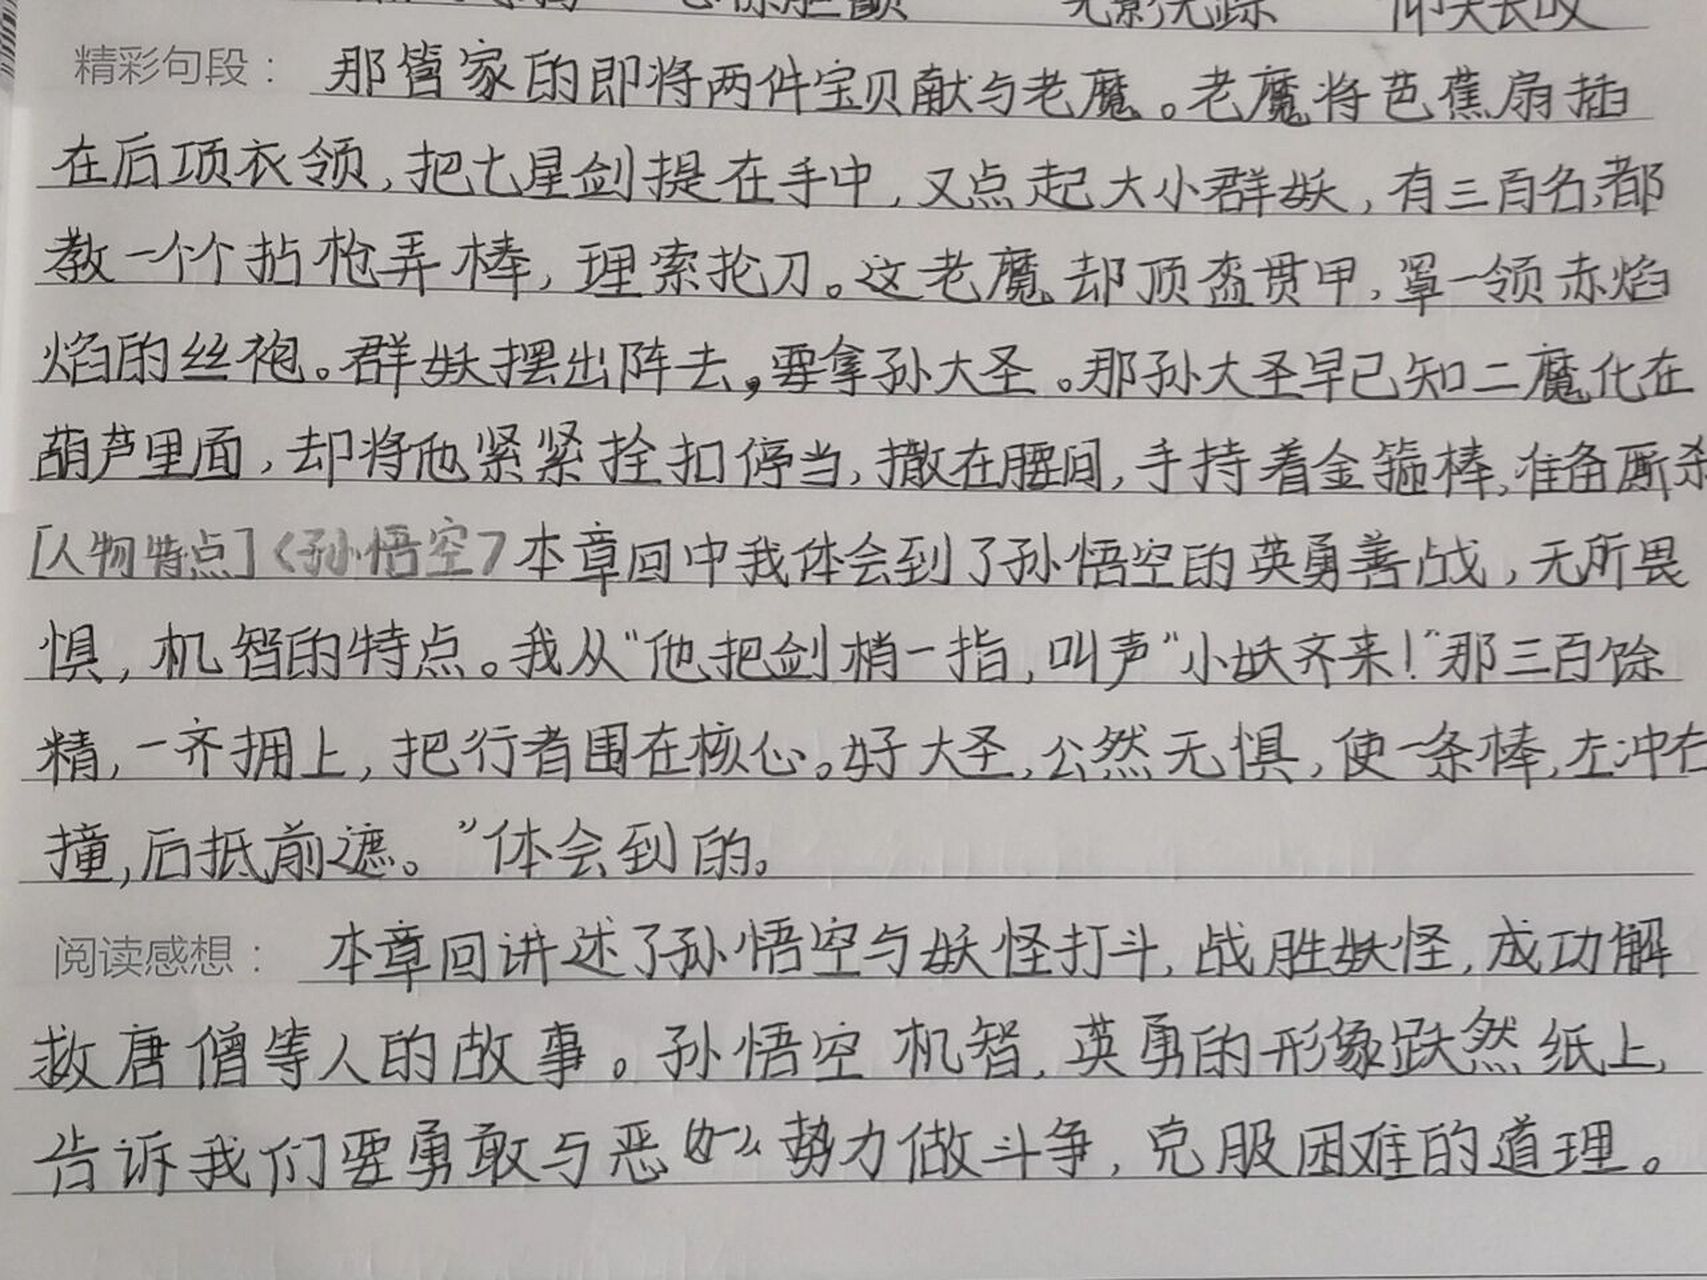 无影无踪 仰天长叹
精彩句段： 那管家的即将两件宝贝献与老魔。老魔将芭蕉扇插
在后项衣领，把七星剑提在手中，又点起大小群妖，有三百名，都
教一个个拈枪弄棒，理索抡刀。这老魔却顶盔贯甲，罩一领赤焰
焰的丝袍。群妖摆出阵去，要拿孙大圣。那孙大圣早已知二魔化在
葫芦里面，却将他紧紧拴扣停当，撒在腰间，手持着金箍棒，准备厮杀
[人物特点]〈孙悟空〉本章回中我体会到了孙悟空的英勇善战，无所畏
惧，机智的特点。我从“他把剑梢一指，叫声“小妖齐来！”那三百馀
精，一齐拥上，把行者围在核心。好大圣，公然无惧，使一条棒，左冲右
撞，后抵前遮。”体会到的。
阅读感想： 本章回讲述了孙悟空与妖怪打斗，战胜妖怪，成功解
救唐僧等人的故事。孙悟空机智，英勇的形象跃然纸上，
告诉我们要勇敢与恶势力做斗争，克服困难的道理。